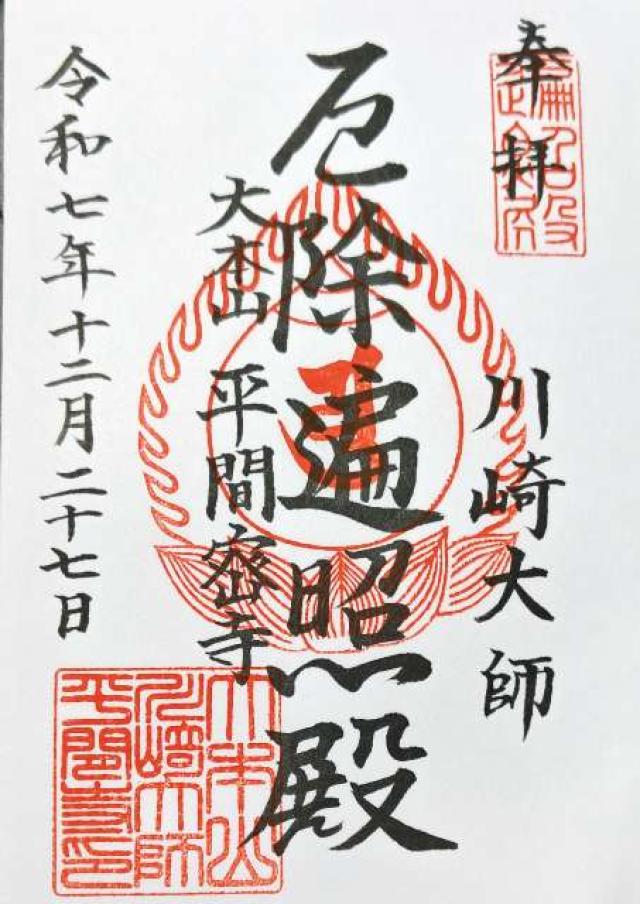 奉拝
川崎大師
厄除遍照殿
大本山 平間寺
令和七年十二月二十七日
遍照殿
大本山
川崎大師
平間寺印